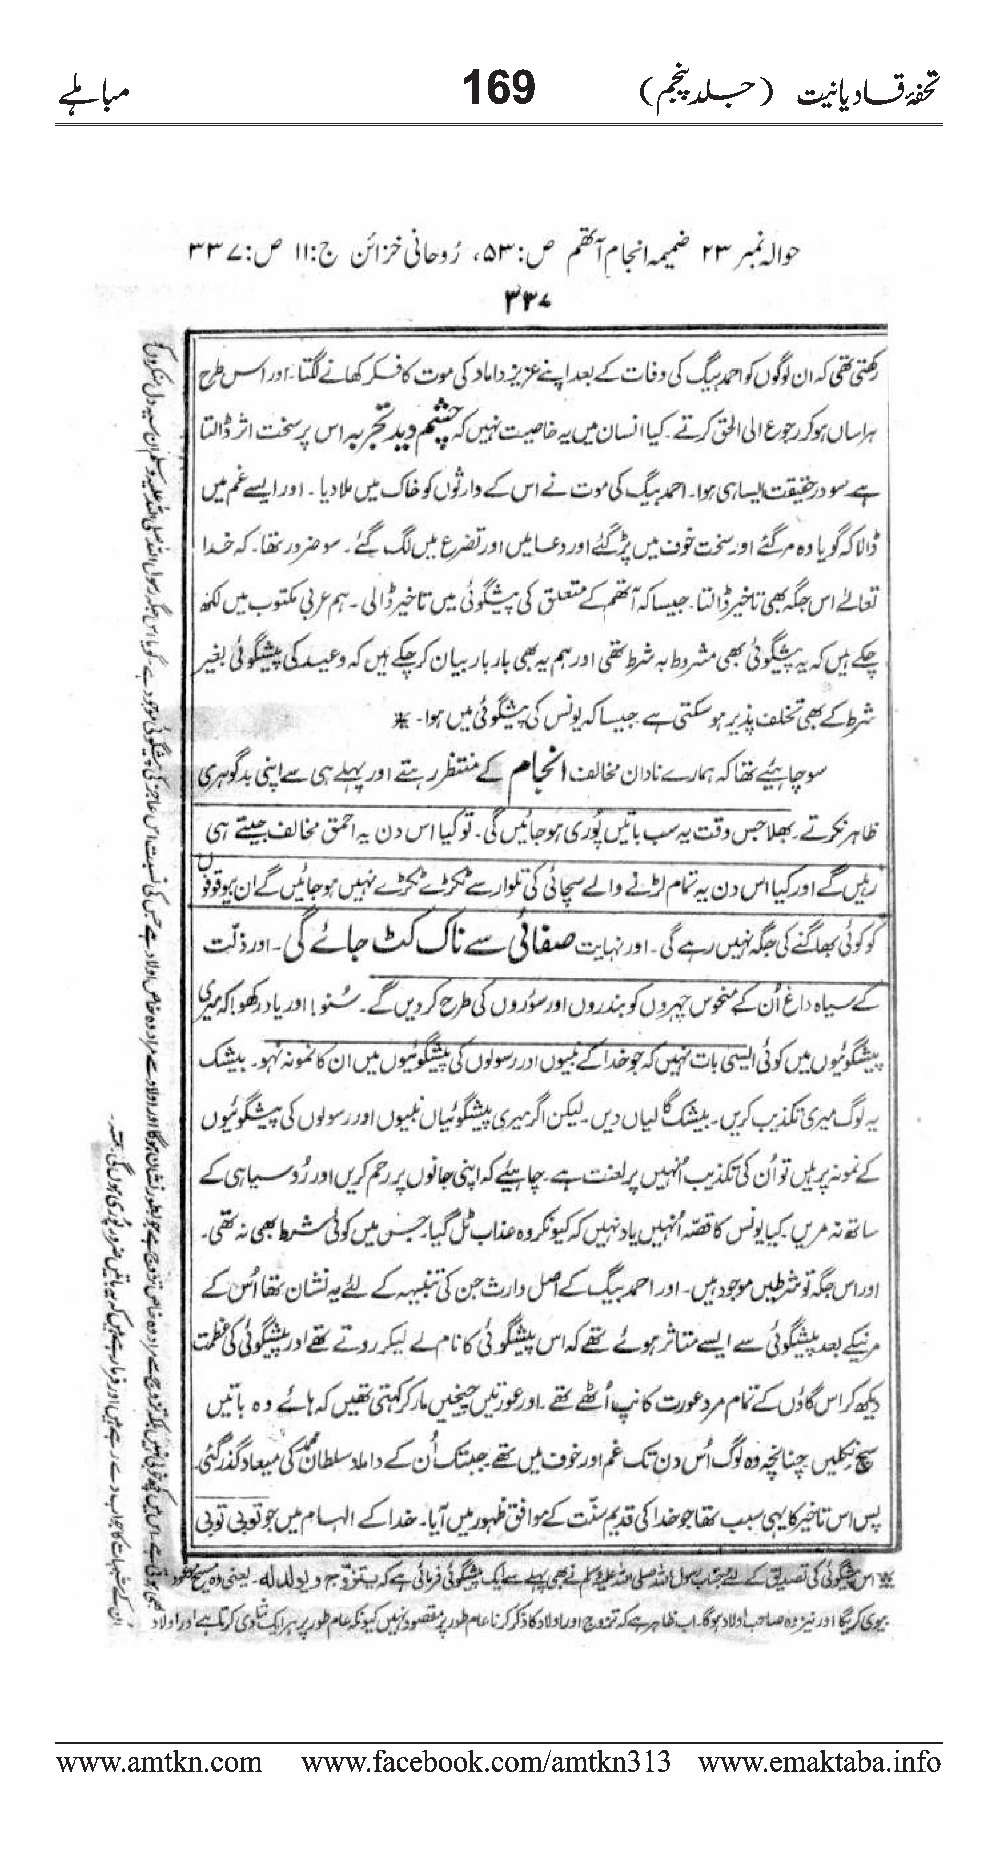 تحفۂ قادیانیت (جلد پنجم) 169 مباہلے
حوالہ نمبر ۲۳ ضمیمہ انجام آتھم ص:۵۳، رُوحانی خزائن ج:۱۱ ص:۳۳۷
۳۳۷
رکھتی تھی کہ ان لوگوں کو احمد بیگ کی وفات کے بعد اپنے عزیز داماد کی موت کا فکر کھانے لگتا۔ اور اس طرح
ہراساں ہو کر رجوع الی الحق کرتے۔ کیا انسان میں یہ خاصیت نہیں کہ چشم دید تجربہ اس پر سخت اثر ڈالتا
ہے سو درحقیقت ایسا ہی ہوا۔ احمد بیگ کی موت نے اس کے وارثوں کو خاک میں ملا دیا۔ اور ایسے غم میں
ڈالا کہ گویا وہ مر گئے اور سخت خوف میں پڑ گئے اور دعا میں اور تضرع میں لگ گئے۔ سو ضرور تھا۔ کہ خدا
تعالےٰ اس جگہ بھی تاخیر ڈالتا۔ جیسا کہ آتھم کے متعلق کی پیشگوئی میں تاخیر ڈالی۔ ہم عربی مکتوب میں لکھ
چکے ہیں کہ یہ پیشگوئی بھی مشروط بہ شرط تھی اور ہم یہ بھی بار بار بیان کر چکے ہیں کہ وعید کی پیشگوئی بغیر
شرط کے بھی تخلف پذیر ہو سکتی ہے جیسا کہ یونس کی پیشگوئی میں ہوا۔ *
سو چاہیئے تھا کہ ہمارے نادان مخالف انجام کے منتظر رہتے اور پہلے ہی سے اپنی بدگوہری
ظاہر نکرتے۔ بھلا جس وقت یہ سب باتیں پُوری ہو جائیں گی۔ تو کیا اس دن یہ احمق مخالف جیتے ہی
رہیں گے اور کیا اس دن یہ تمام لڑنے والے سچائی کی تلوار سے ٹکڑے ٹکڑے نہیں ہو جائیں گے ان بیوقوفوں
کو کوئی بھاگنے کی جگہ نہیں رہے گی۔ اور نہایت صفائی سے ناک کٹ جائے گی۔ اور ذلّت
کے سیاہ داغ اُن کے منحوس چہروں کو بندروں اور سؤروں کی طرح کر دیں گے۔ سُنو! اور یاد رکھو! کہ میری
پیشگوئیوں میں کوئی ایسی بات نہیں کہ جو خدا کے نبیوں اور رسولوں کی پیشگوئیوں میں ان کا نمونہ نہو۔ بیشک
یہ لوگ میری تکذیب کریں۔ بیشک گالیاں دیں۔ لیکن اگر میری پیشگوئیاں نبیوں اور رسولوں کی پیشگوئیوں
کے نمونہ پر ہیں تو اُن کی تکذیب اُنہیں پر لعنت ہے۔ چاہیئے کہ اپنی جانوں پر رحم کریں اور رُوسیاہی کے
ساتھ نہ مریں۔ کیا یونس کا قصّہ اُنہیں یاد نہیں کہ کیونکر وہ عذاب ٹل گیا۔ جس میں کوئی شرط بھی نہ تھی۔
اور اس جگہ تو شرطیں موجود ہیں۔ اور احمد بیگ کے اصل وارث جن کی تنبیہہ کے لئے یہ نشان تھا اُس کے
مرنیکے بعد پیشگوئی سے ایسے متاثر ہوئے تھے کہ اس پیشگوئی کا نام لے لیکر روتے تھے اور پیشگوئی کی عظمت
دیکھ کر اس گاؤں کے تمام مرد عورت کانپ اُٹھے تھے۔ اور عورتیں چیخیں مار کر کہتی تھیں کہ ہائے وہ باتیں
سچ نکلیں چنانچہ وہ لوگ اُس دن تک غم اور خوف میں تھے جبتک اُن کے داماد سلطان محمد کی میعاد گذر گئی۔
پس اس تاخیر کا یہی سبب تھا جو خدا کی قدیم سنّت کے موافق ظہور میں آیا۔ خدا کے الہام میں جو توبی توبی
* اس پیشگوئی کی تصدیق کے لئے جناب رسول اللہ صلی اللہ علیہ وسلم نے بھی پہلے سے ایک پیشگوئی فرمائی ہے کہ یتزوّج و یولد لہ۔ یعنی وہ مسیح موعود
بیوی کریگا اور نیز وہ صاحب اولاد ہوگا۔ اب ظاہر ہے کہ تزوج اور اولاد کا ذکر کرنا عام طور پر مقصود نہیں کیونکہ عام طور پر ہر ایک شادی کرتا ہے اور اولاد
بھی ہوتی ہے۔ اس میں کچھ خوبی نہیں بلکہ تزوج سے مراد وہ خاص تزوج ہے جو بطور نشان ہوگا اور اولاد سے مراد وہ خاص اولاد ہے جس کی نسبت اس عاجز کی پیشگوئی موجود ہے۔ گویا اس جگہ رسول اللہ صلی اللہ علیہ وسلم ان سیہ دل منکروں کو
ان کے شبہات کا جواب دے رہے ہیں اور فرما رہے ہیں کہ یہ باتیں ضرور پوری ہوں گی۔ منہ
www.amtkn.com www.facebook.com/amtkn313 www.emaktaba.info